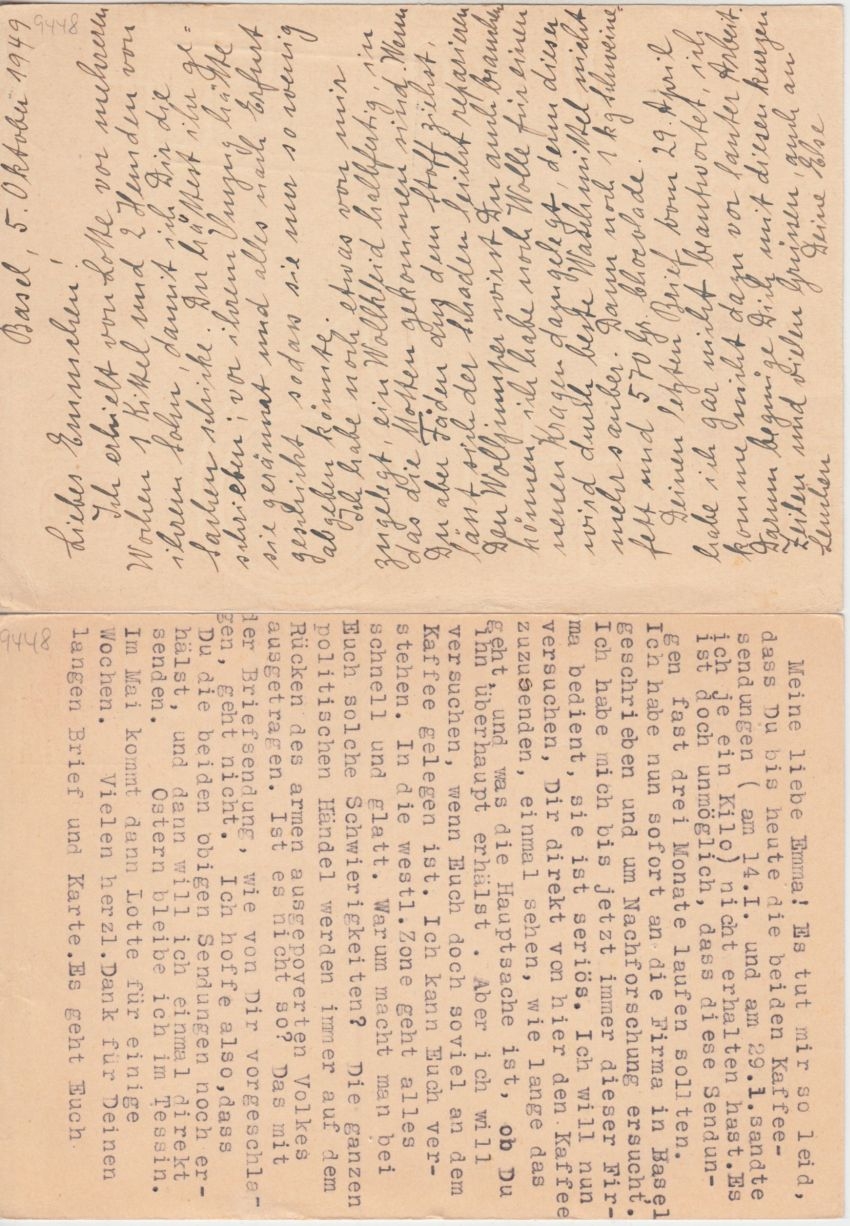 9448
Basel, 5. Oktober 1949
Liebes Emmchen!
Ich erhielt von Lotte vor mehreren
Wochen 1 Kittel und 2 Hemden von
ihrem Sohn, damit ich Dir die
Sachen schicke. Du hättest ihr ge-
schrieben; vor ihrem Umzug hätte
sie geräumt und alles nach Erfurt
geschickt sodass sie nur so wenig
abgeben könnte.
Ich habe noch etwas von mir
zugelegt, ein Wollkleid halbfertig, in
das die Motten gekommen sind. Wenn
Du aber Fäden aus dem Stoff ziehst,
lässt sich der Schaden leicht reparieren
Den Wolljumper wirst Du auch brauchen
können, ich habe noch Wolle für einen
neuen Kragen dazugelegt, denn dieser
wird durch beste Waschmittel nicht
mehr sauber. Dann noch 1 kg Schweine-
fett und 570 gr. Chocolade.
Deinen letzten Brief vom 29. April
habe ich gar nicht beantwortet, ich
komme nicht dazu vor lauter Arbeit.
Darum begnüge Dich mit diesen kurzen
Zeilen und vielen Grüssen, auch an
Lenchen Deine Else
9448
Meine liebe Emma! Es tut mir so leid,
dass Du bis heute die beiden Kaffee-
sendungen ( am 14.I. und am 29.1.sandte
ich je ein Kilo) nicht erhalten hast.Es
ist doch unmöglich, dass diese Sendun-
gen fast drei Monate laufen sollten.
Ich habe nun sofort an die Firma in Basel
geschrieben und um Nachforschung ersucht.
Ich habe mich bis jetzt immer dieser Fir-
ma bedient, sie ist seriös. Ich will nun
versuchen, Dir direkt von hier den Kaffee
zuzusenden, einmal sehen, wie lange das
geht, und was die Hauptsache ist, ob Du
ihn überhaupt erhälst . Aber ich will
versuchen, wenn Euch doch soviel an dem
Kaffee gelegen ist. Ich kann Euch ver-
stehen. In die westl.Zone geht alles
schnell und glatt. Warum macht man bei
Euch solche Schwierigkeiten? Die ganzen
politischen Händel werden immer auf dem
Rücken des armen ausgepoverten Volkes
ausgetragen. Ist es nicht so? Das mit
der Briefsendung, wie von Dir vorgeschla-
gen, geht nicht. Ich hoffe also,dass
Du die beiden obigen Sendungen noch er-
hälst, und dann will ich einmal direkt
senden. Ostern bleibe ich im Tessin.
Im Mai kommt dann Lotte für einige
Wochen. Vielen herzl.Dank für Deinen
langen Brief und Karte.Es geht Euch